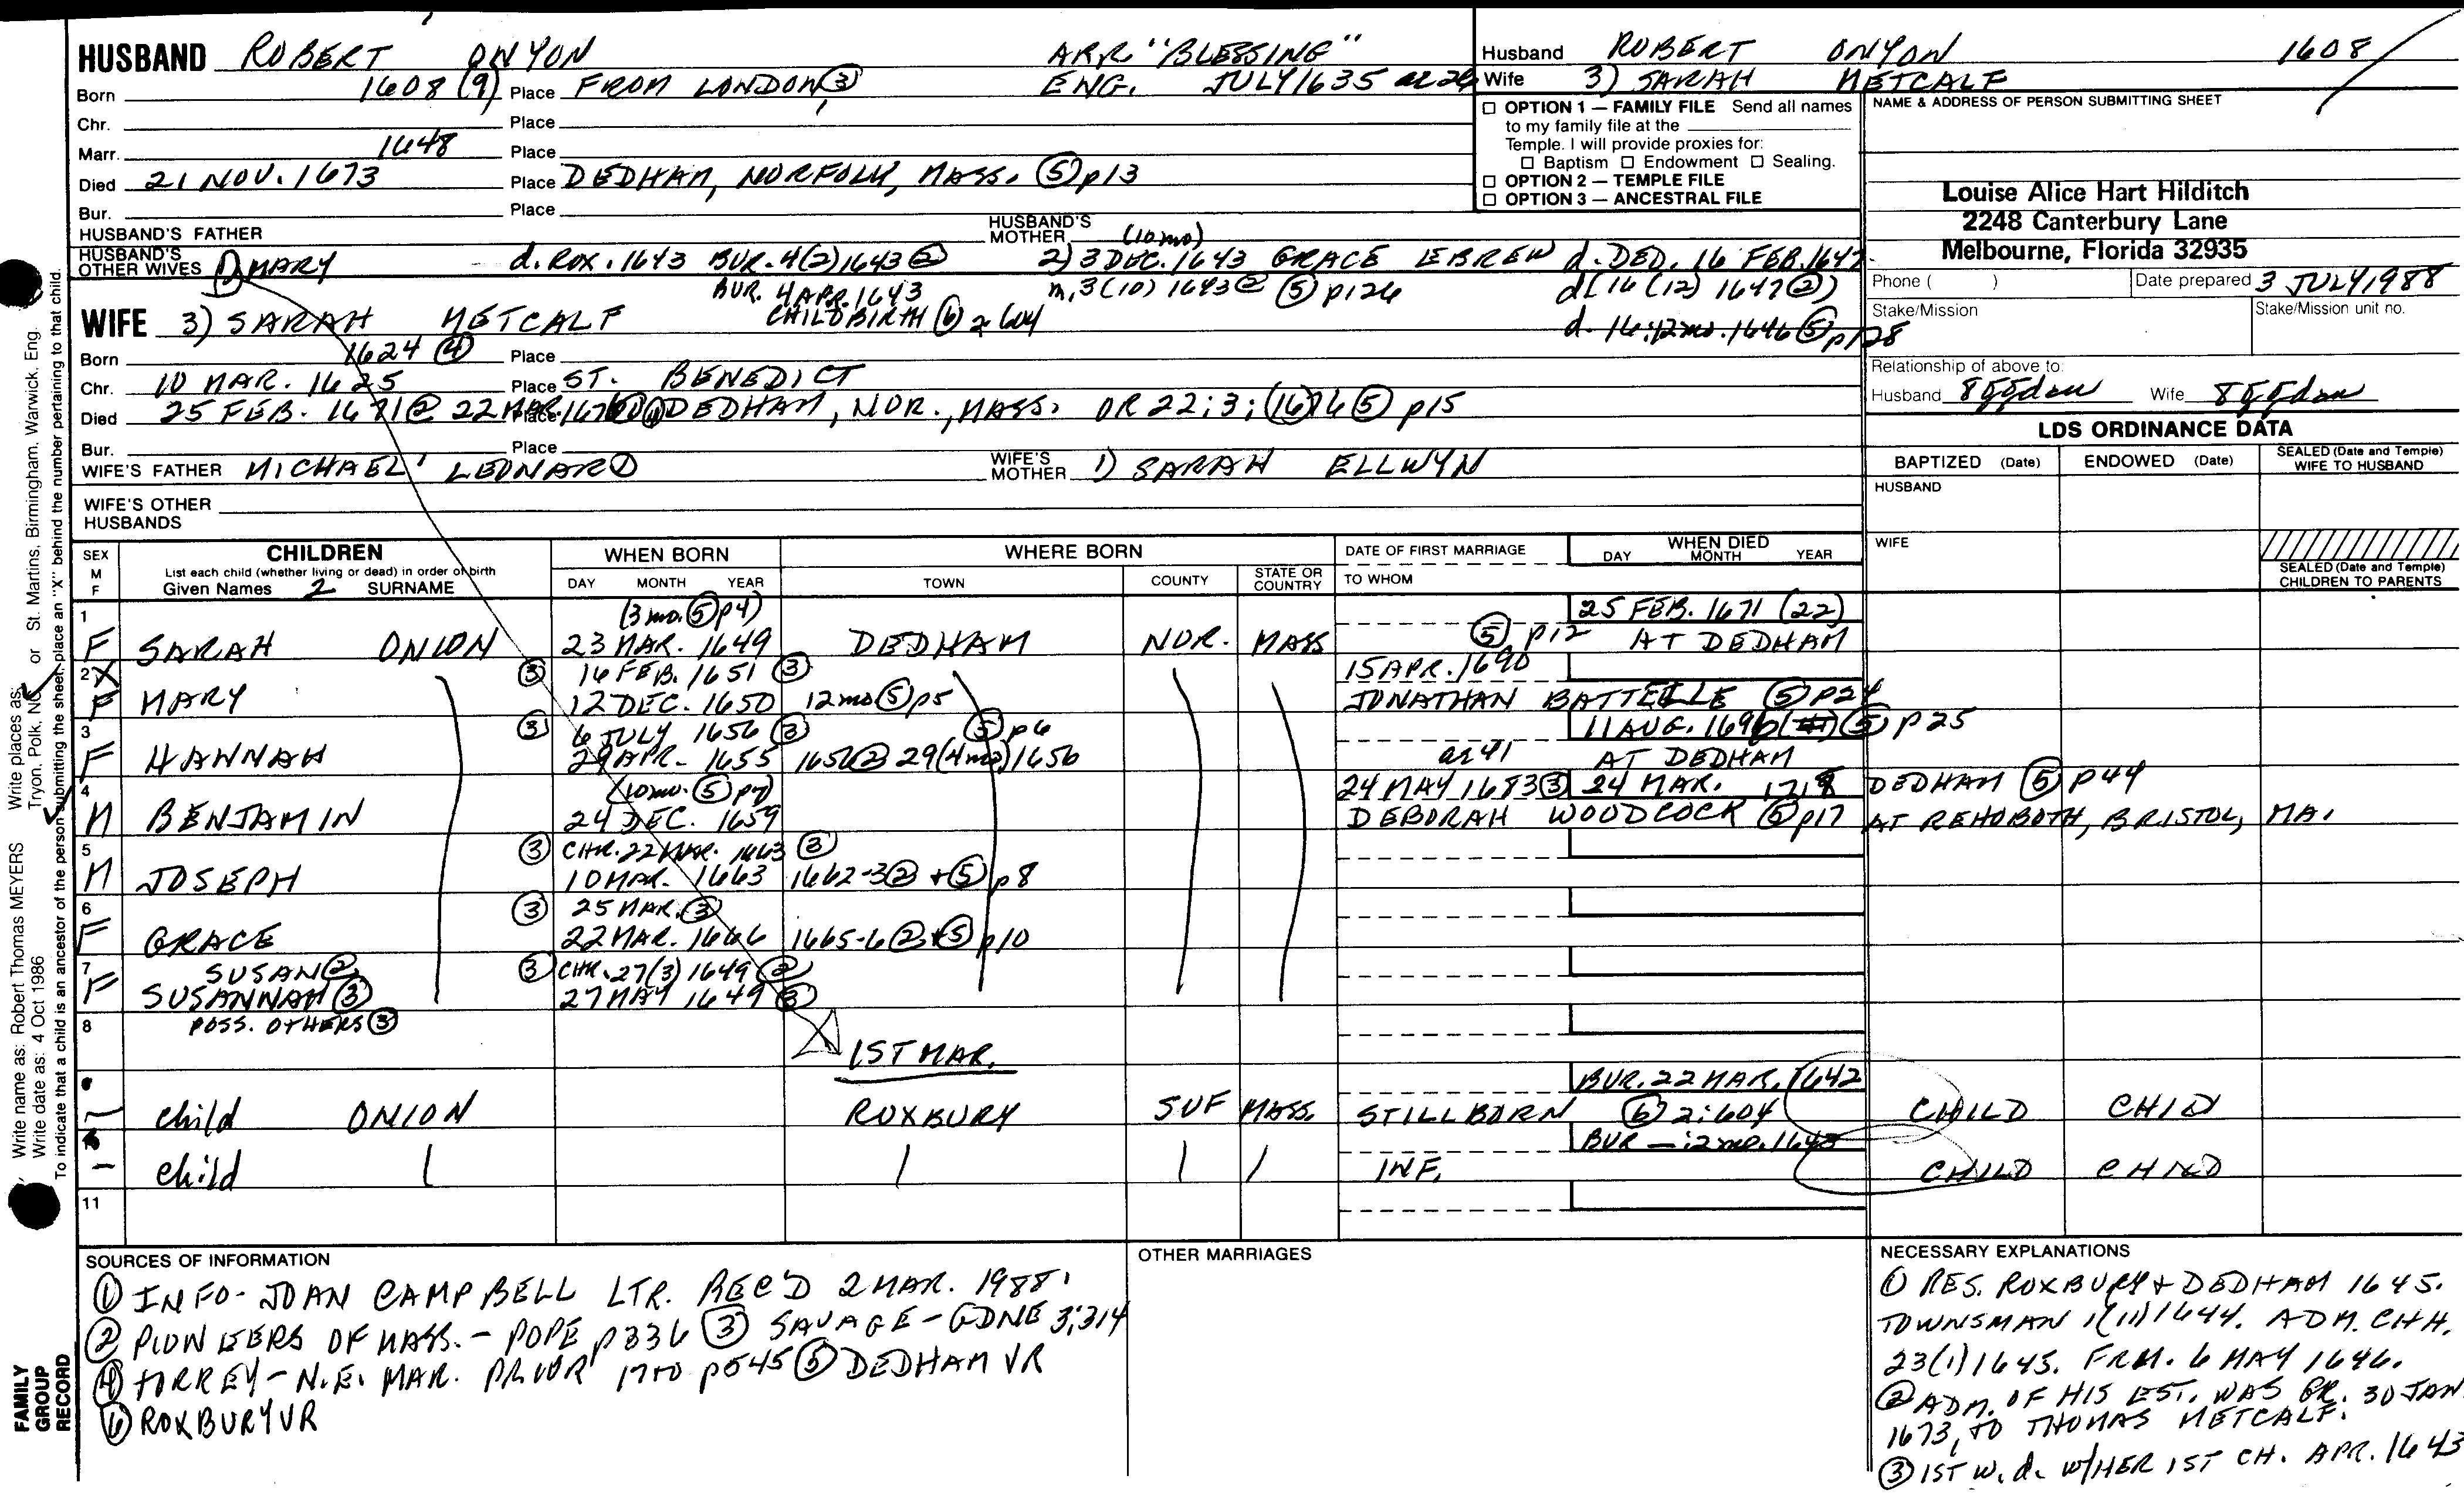 HUSBAND ROBERT ONYON ARR. "BLESSING"
Born 1608 (9) Place FROM LONDON, ③ ENG. JULY 1635 ae 26
Chr. Place
Marr. 1648 Place
Died 21 NOV. 1673 Place DEDHAM, NORFOLK, MASS. ⑤ p13
Bur. Place
HUSBAND'S FATHER HUSBAND'S MOTHER
HUSBAND'S OTHER WIVES 1) MARY d. ROX. 1643 BUR. 4(2)1643 ② 2) 3 DEC. 1643 (10 mo) GRACE LEBREW d. DED. 16 FEB. 1647
BUR. 4 APR. 1643 m. 3(10) 1643 ② ⑤ p126 d(16 (12) 1647 ②)
CHILDBIRTH ⑥ 2:604 d. 16:12 mo. 1646 ⑤ p128
WIFE 3) SARAH METCALF
Born 1624 ④ Place
Chr. 10 MAR. 1625 Place ST. BENEDICT
Died 25 FEB. 1671 ② 22 MAR. Place DEDHAM, NOR., MASS. OR 22;3;(16)76 ⑤ p15
Bur. Place
WIFE'S FATHER MICHAEL LEONARD WIFE'S MOTHER 1) SARAH ELLWYN
WIFE'S OTHER HUSBANDS
Husband ROBERT ONYON 1608
Wife 3) SARAH METCALF
☐ OPTION 1 — FAMILY FILE Send all names
to my family file at the
Temple. I will provide proxies for:
☐ Baptism ☐ Endowment ☐ Sealing.
☐ OPTION 2 — TEMPLE FILE
☐ OPTION 3 — ANCESTRAL FILE
NAME & ADDRESS OF PERSON SUBMITTING SHEET
Louise Alice Hart Hilditch
2248 Canterbury Lane
Melbourne, Florida 32935
Phone ( ) Date prepared 3 JULY, 1988
Stake/Mission Stake/Mission unit no.
Relationship of above to:
Husband 8ggdau Wife 8ggdau
LDS ORDINANCE DATA
BAPTIZED (Date) ENDOWED (Date) SEALED (Date and Temple) WIFE TO HUSBAND
HUSBAND
WIFE
SEALED (Date and Temple) CHILDREN TO PARENTS
SEX M F
CHILDREN
List each child (whether living or dead) in order of birth
Given Names 2 SURNAME
WHEN BORN
DAY MONTH YEAR
WHERE BORN
TOWN COUNTY STATE OR COUNTRY
DATE OF FIRST MARRIAGE
TO WHOM
WHEN DIED
DAY MONTH YEAR
1 (3 mo. ⑤ p4) 25 FEB. 1671 (22)
F SARAH ONION 23 MAR. 1649 DEDHAM NOR. MASS ⑤ p12 AT DEDHAM
2 X ③ 16 FEB. 1651 ③ 15 APR. 1690
F MARY 12 DEC. 1650 12 mo ⑤ p5 JONATHAN BATTELLE ⑤ P24
3 ③ 6 JULY 1656 ③ ⑤ p6 11 AUG. 1696 ⑤ p25
F HANNAH 29 APR. 1655 1656 ② 29 (4 mo) 1656 ae 41 AT DEDHAM
4 (10 mo. ⑤ p7) 24 MAY 1683 ③ 24 MAR. 1718 DEDHAM ⑤ p44
M BENJAMIN 24 DEC. 1659 DEBORAH WOODCOCK ⑤ p17 AT REHOBOTH, BRISTOL, MA.
5 ③ CHR. 22 MAR. 1663 ③
M JOSEPH 10 MAR. 1663 1662-3 ② + ⑤ p8
6 ③ 25 MAR. ③
F GRACE 22 MAR. 1666 1665-6 ② + ⑤ p10
7 SUSAN ② ③ CHR. 27(3) 1649 ②
F SUSANNAH ③ 27 MAY 1649 ③
8 POSS. OTHERS ③
1ST MAR.
BUR. 22 MAR. 1642
child ONION ROXBURY SUF MASS. STILLBORN ⑥ 2:604 CHILD CHILD
BUR — :2 mo. 1643
child INF. CHILD CHILD
11
SOURCES OF INFORMATION
① INFO - JOAN CAMPBELL LTR. REC'D 2 MAR. 1988.
② PIONEERS OF MASS. - POPE p336 ③ SAVAGE - GDNE 3:314
④ TORREY - N.E. MAR. PRIOR 1700 p545 ⑤ DEDHAM VR
⑥ ROXBURY VR
OTHER MARRIAGES
NECESSARY EXPLANATIONS
① RES. ROXBURY + DEDHAM 1645.
TOWNSMAN 1(11)1644. ADM. CHH.
23(1)1645. FRM. 6 MAY 1646.
② ADM. OF HIS EST. WAS GR. 30 JAN.
1673, TO THOMAS METCALF.
③ 1ST W. d. W/HER 1ST CH. APR. 1643
Write name as: Robert Thomas MEYERS Write places as: Tryon, Polk, NC or St. Martins, Birmingham, Warwick, Eng.
Write date as: 4 Oct 1986
To indicate that a child is an ancestor of the person submitting the sheet, place an "X" behind the number pertaining to that child.
FAMILY
GROUP
RECORD